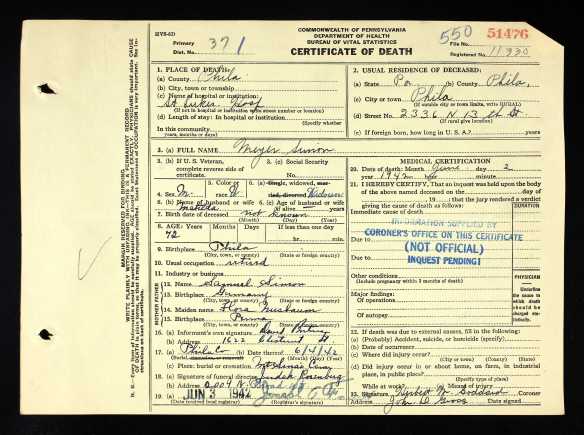 HVS-6D
COMMONWEALTH OF PENNSYLVANIA
DEPARTMENT OF HEALTH
BUREAU OF VITAL STATISTICS
CERTIFICATE OF DEATH
Primary
Dist. No. 371
550
File No. 51476
Registered No. 11930
1. PLACE OF DEATH:
(a) County Phila
(b) City, town or township
(c) Name of hospital or institution:
St Lukes Hosp
(If not in hospital or institution give street number or location)
(d) Length of stay: In hospital or institution
(Specify whether
In this community
years, months or days)
2. USUAL RESIDENCE OF DECEASED:
(a) State Pa (b) County Phila,
(c) City or town Phila
(If outside city or town limits, write RURAL)
(d) Street No. 2336 N 13 St
(If rural give location)
(e) If foreign born, how long in U. S. A.? years
3. (a) FULL NAME Meyer Simon
3. (b) If U. S. Veteran,
complete reverse side of
certificate.
3. (c) Social Security
No.
4. Sex M
5. Color W
widowed
6. (b) Name of husband or wife
Matilda
6. (c) Age of husband or wife
if alive years
7. Birth date of deceased not known
(Month) (Day) (Year)
8. AGE: Years Months Days If less than one day
72
hr. min.
9. Birthplace Phila
(City, town, or county) (State or foreign country)
10. Usual occupation retired
11. Industry or business
12. Name Samuel Simon
13. Birthplace Germany
(City, town, or county) (State or foreign country)
14. Maiden name Flora
15. Birthplace Penna
(City, town, or county) (State or foreign country)
16. (a) Informant's own signature
(b) Address 1622 Chestnut St
17. (a) (b) Date thereof 6/4/42
(Burial, cremation, or removal) (Month) (Day) (Year)
(c) Place: burial or cremation
18. (a) Signature of funeral director
(b) Address 2009 N Broad St
19. (a) JUN 3 1942
(Registrar's signature)
MEDICAL CERTIFICATION
20. Date of death: Month June day 2
year 1942
21. I HEREBY CERTIFY, That an inquest was held upon the body
of the above named deceased on the day of
19 that the jury rendered a verdict
giving the cause of death as follows:
DURATION
Immediate cause of death
INFORMATION SUPPLIED BY
CORONER'S OFFICE ON THIS CERTIFICATE
(NOT OFFICIAL)
INQUEST PENDING!
Due to
Due to
Other conditions
(Include pregnancy within 3 months of death)
Major findings:
Of operations
Of autopsy
PHYSICIAN
Underline
the cause to
which death
should be
charged
statistically.
22. If death was due to external causes, fill in the following:
(a) Probably (Accident, suicide, or homicide) (specify)
(b) Date of occurrence
(c) Where did injury occur?
(City or town) (County) (State)
(d) Did injury occur in or about home, on farm, in industrial
place, in public place?
(Specify type of place)
While at work? (e) Means of injury
23. Signature Herbert M Goddard Coroner
Address
MARGIN RESERVED FOR BINDING
WRITE PLAINLY WITH UNFADING INK—THIS IS A PERMANENT RECORD
MOTHER FATHER